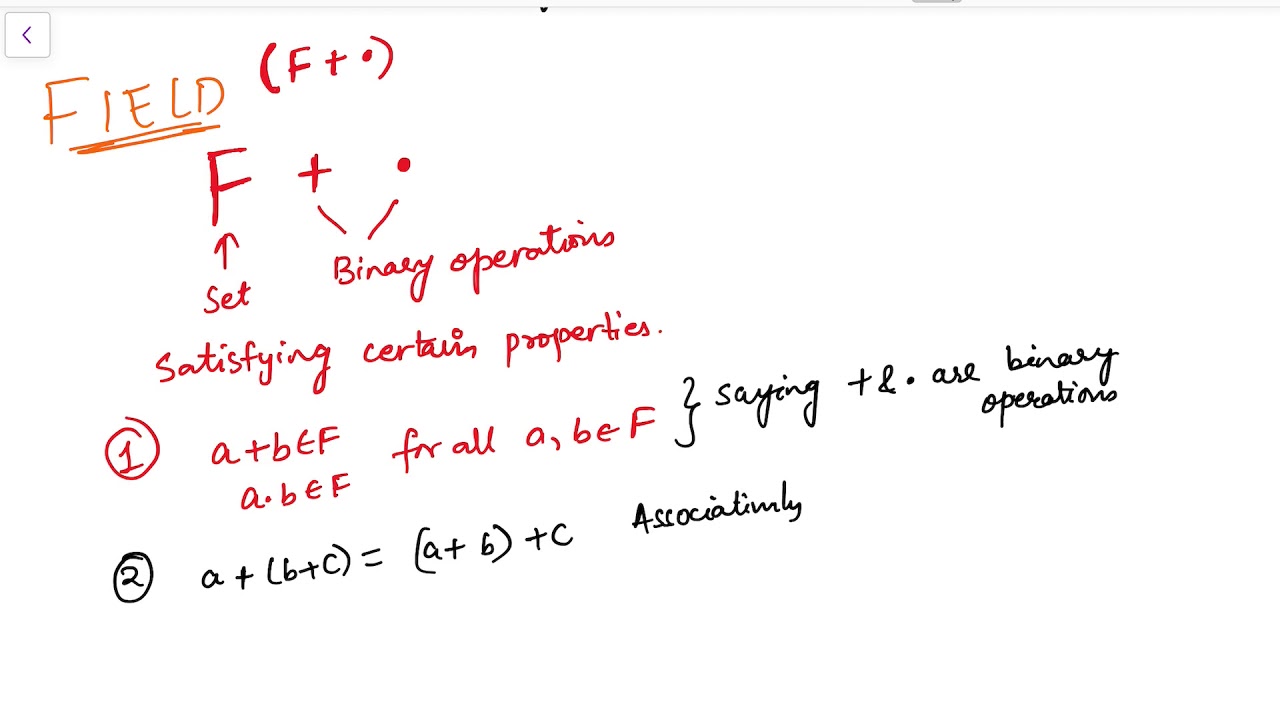 FIELD (F + •)
F + •
Binary operations
Set
Satisfying certain properties.
① a+b∈F for all a, b∈F } saying + & • are binary operations
a•b∈F
② a + (b+c) = (a+b) + c Associativity